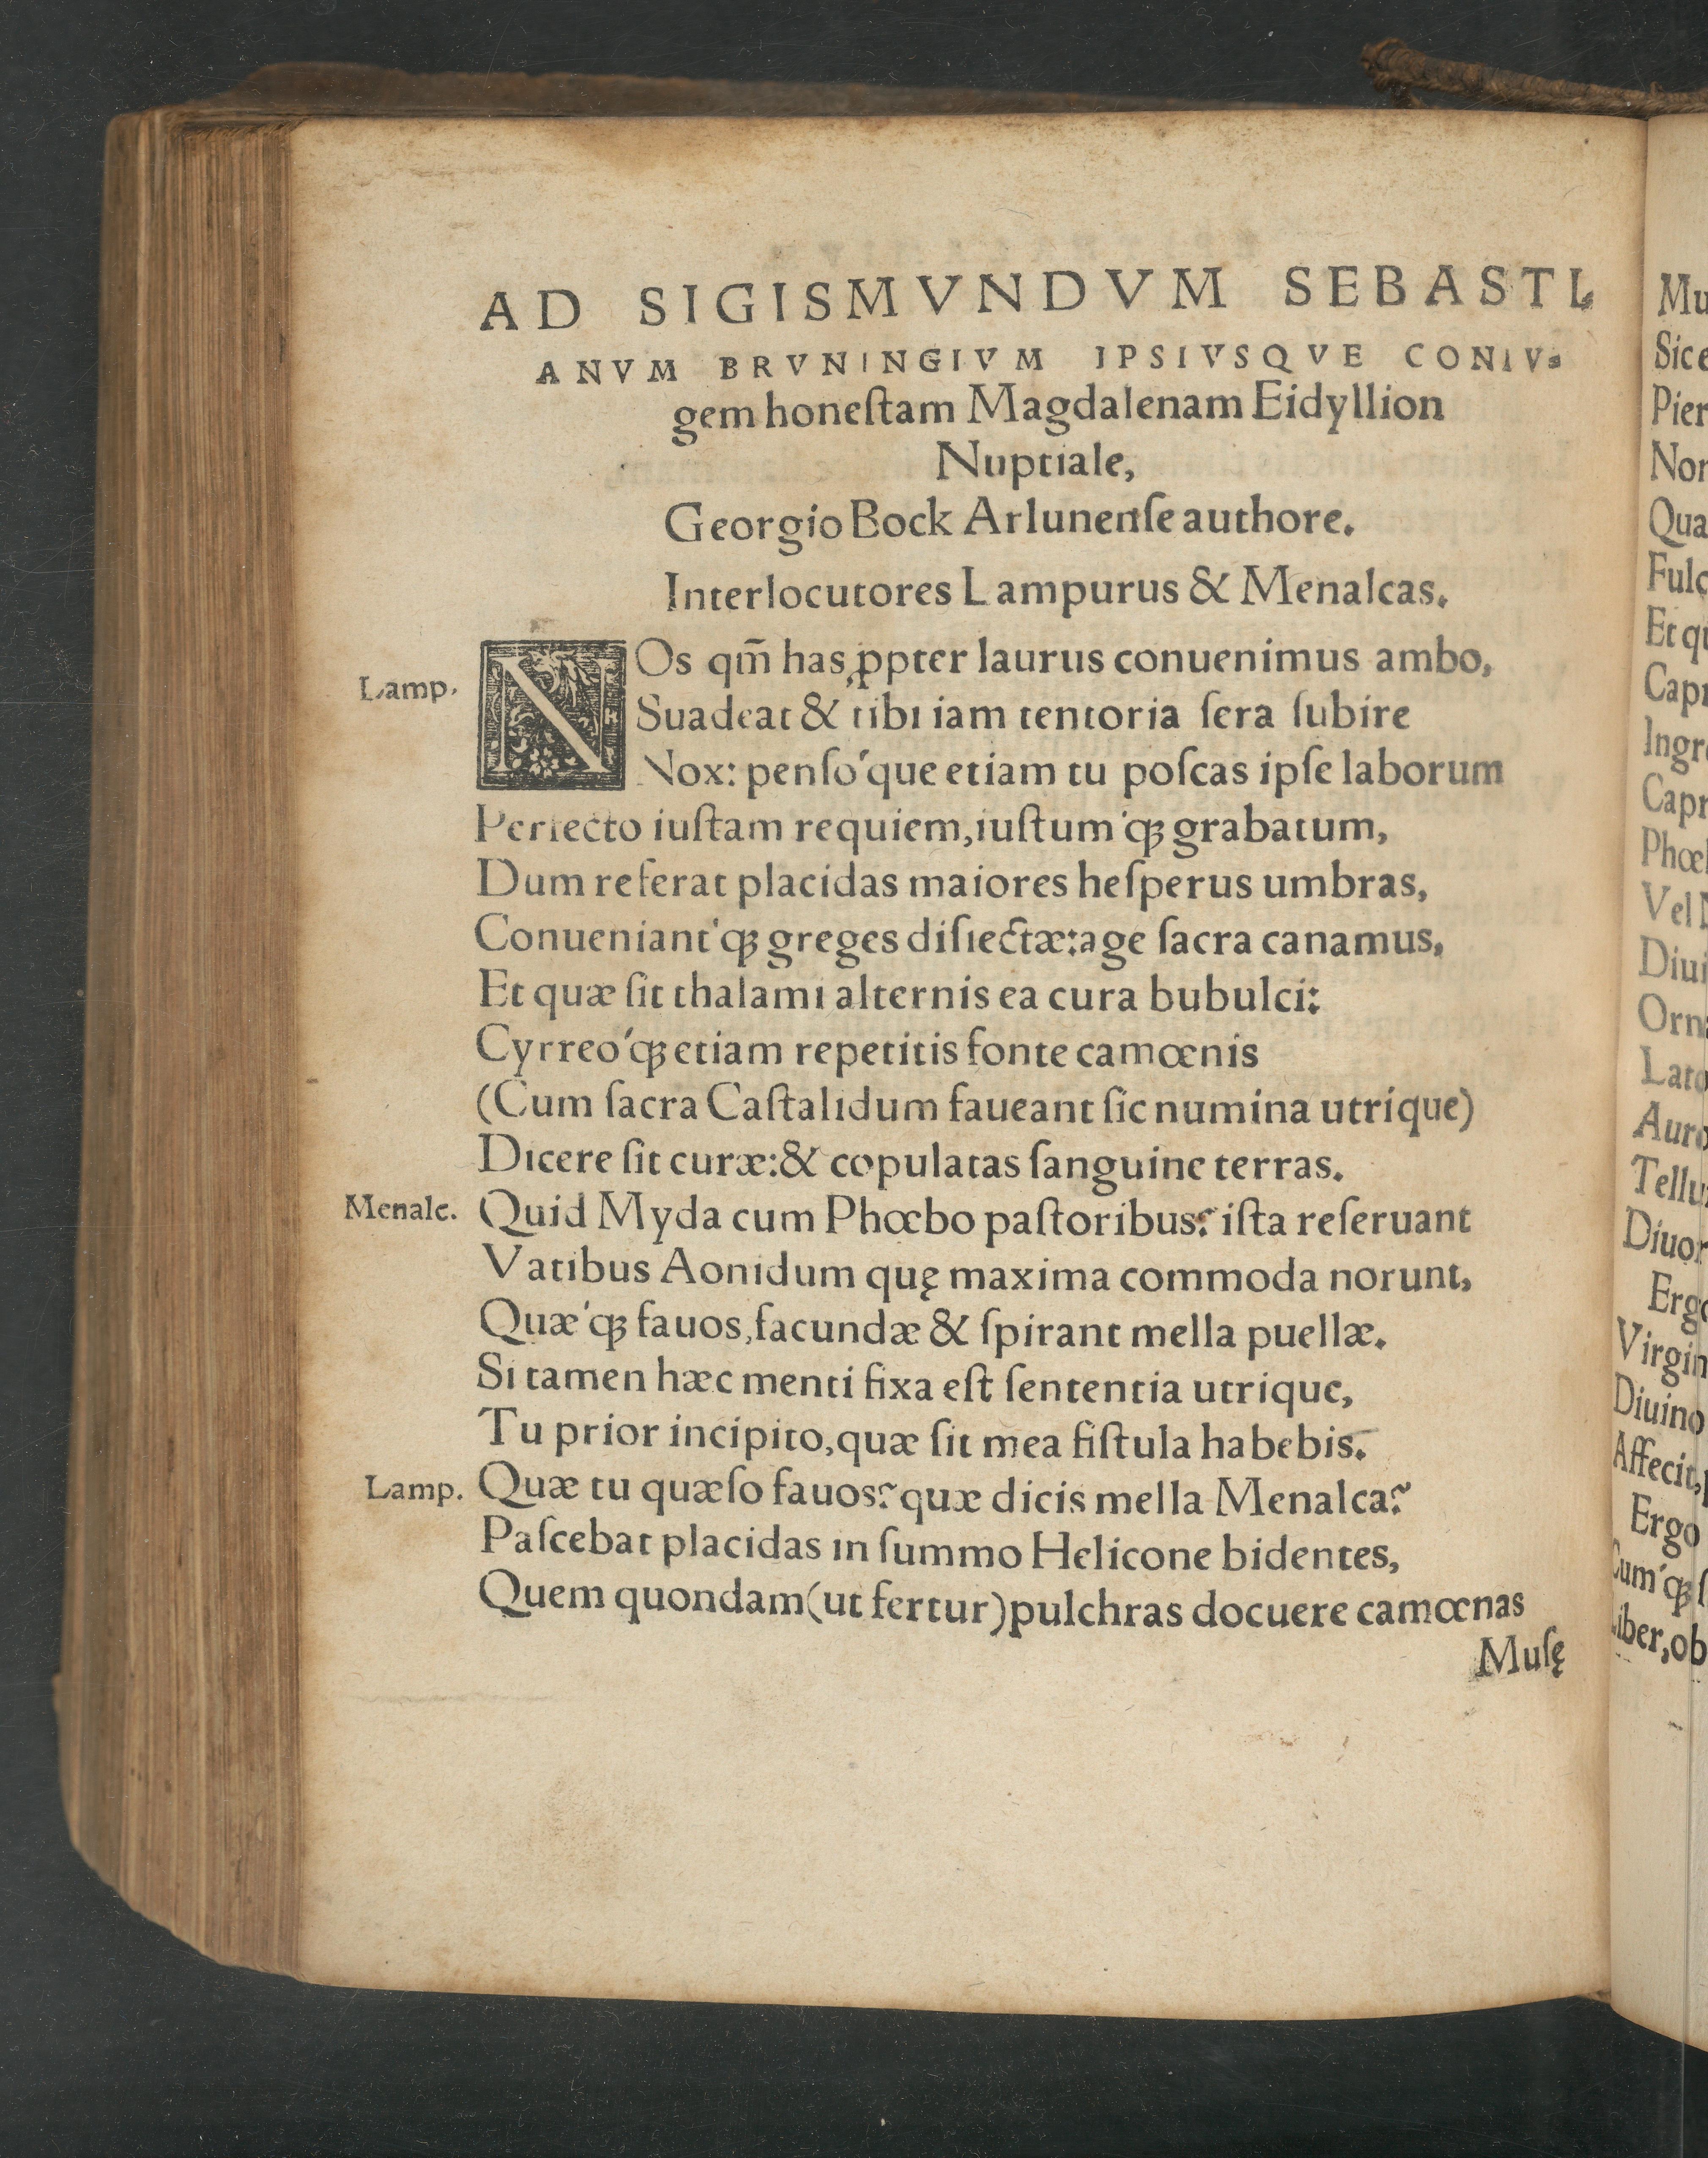 AD SIGISMVNDVM SEBASTI⸗
ANVM BRVNINGIVM IPSIVSQVE CONIV⸗
gem honeſtam Magdalenam Eidyllion
Nuptiale,
Georgio Bock Arlunenſe authore.
Interlocutores Lampurus & Menalcas.
Lamp. NOs qm̃ has ꝓpter laurus conuenimus ambo,
Suadeat & tibi iam tentoria ſera ſubire
Nox: penſo´que etiam tu poſcas ipſe laborum
Perfecto iuſtam requiem, iuſtum´qꝫ grabatum,
Dum referat placidas maiores heſperus umbras,
Conueniant´qꝫ greges diſiectæ: age ſacra canamus,
Et quæ ſit thalami alternis ea cura bubulci:
Cyrreo´qꝫ etiam repetitis fonte camœnis
(Cum ſacra Caſtalidum faueant ſic numina utríque)
Dicere ſit curæ: & copulatas ſanguine terras.
Menalc. Quid Myda cum Phœbo paſtoribus? iſta reſeruant
Vatibus Aonidum quę maxima commoda norunt,
Quæ´qꝫ fauos, facundæ & ſpirant mella puellæ.
Si tamen hæc menti fixa eſt ſententia utrique,
Tu prior incipito, quæ ſit mea fiſtula habebis.
Lamp. Quæ tu quæſo fauos? quæ dicis mella Menalca?
Paſcebat placidas in ſummo Helicone bidentes,
Quem quondam (ut fertur) pulchras docuere camœnas
Muſę
Mu
Sic e
Pier
Non
Qua
Fulc
Et qu
Capr
Ingre
Capr
Phœb
Vel
Diui
Orna
Lato
Auro
Tellu
Diuor
Ergo
Virgin
Diuino
Affecit,
Ergo
Cum´qꝫ ſ
Liber, ob